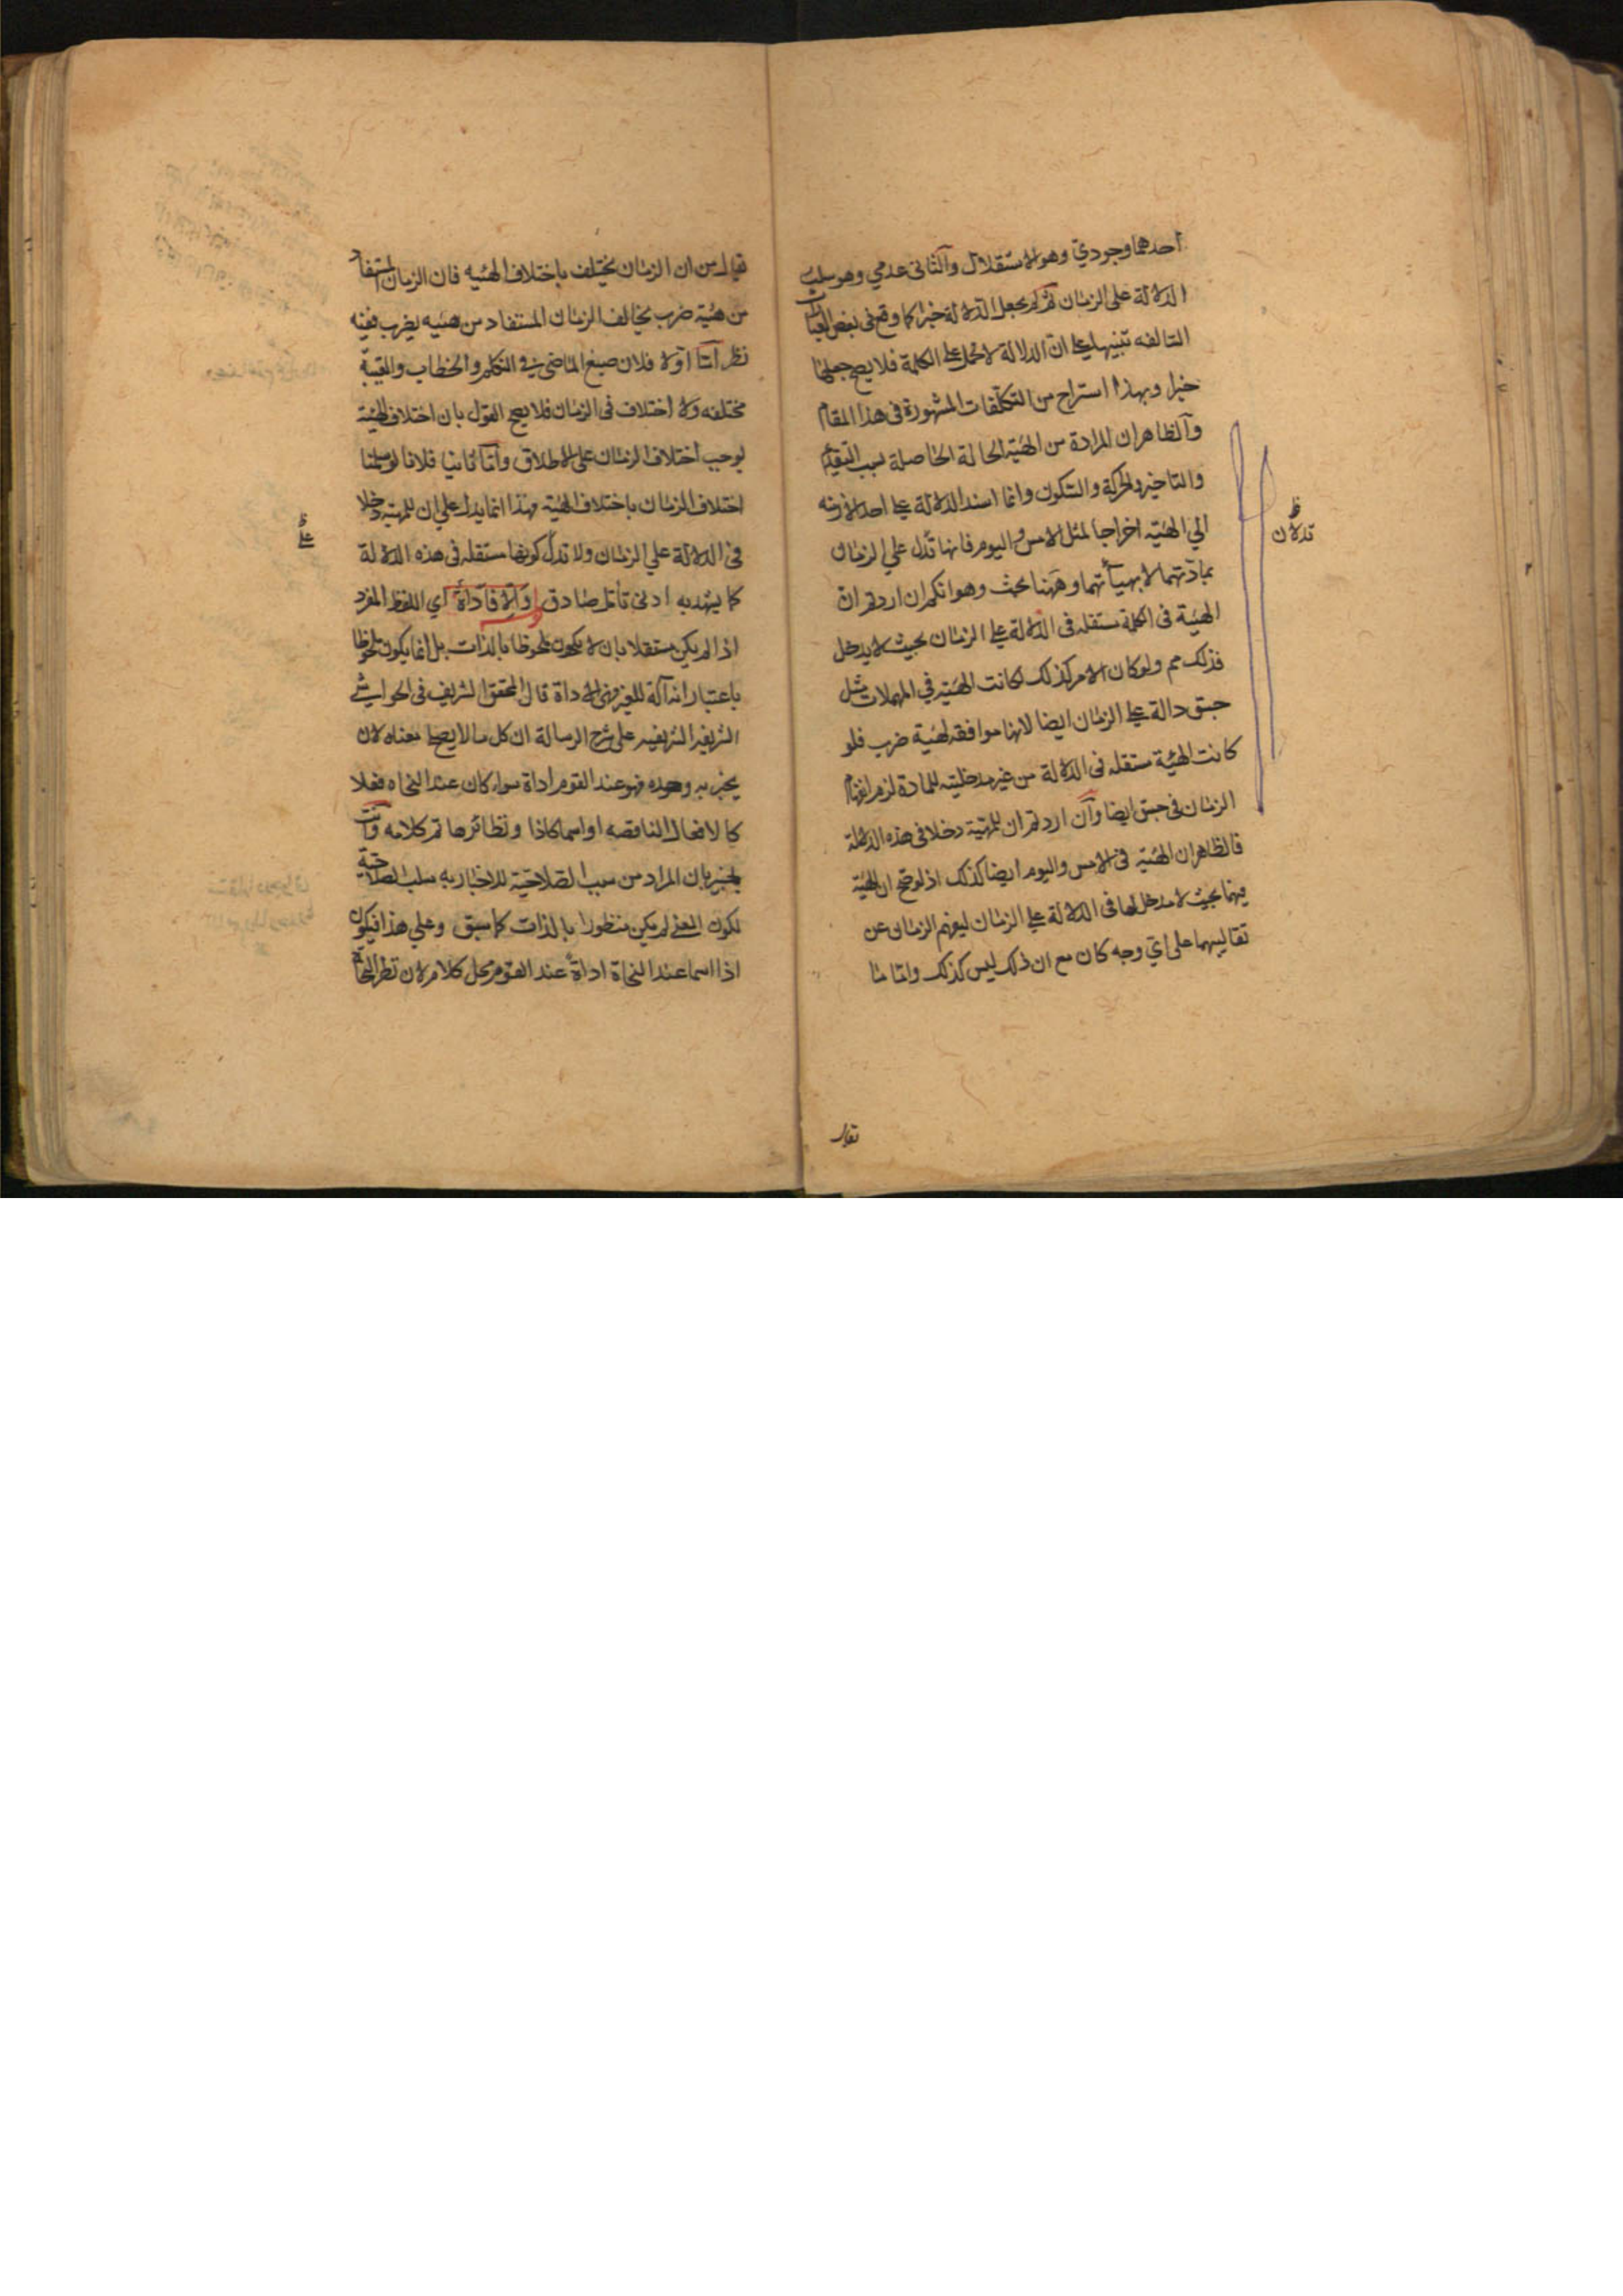 احدهما وجودي وهو الاستقلال والثانى عدمي وهو سلب
الدلالة على الزمان ثم لم يجعل الدلالة خبرا كما وقع فى بعض العبارات
التالفه تنبيها على ان الدلالة لا تحمل على الكلمة فلا يصح جعلها
خبرا وبهذا استراح من التكلفات المشهورة فى هذا المقام
والظاهر ان المرادة من الهيئة الحالة الحاصلة بسبب التقديم
والتاخير والحركة والسكون وانما اسند الدلالة على احد الازمنه
الي الهيئة اخراجا لمثل الامس واليوم فانها تدل علي الزمان
بمادتهما لا بهيأتهما وههنا بحث وهو انكم ان اردتم ان
الهيئة فى الكلمة مستقله فى الدلالة على الزمان بحيث لا يدخل
فذلك مم ولو كان الامر كذلك لكانت الهيئة في المهملات مثل
جسق دالة على الزمان ايضا لانها موافقه لهيئة ضرب فلو
كانت الهيئة مستقله فى الدلالة من غير مدخلية للمادة لزم انفهام
الزمان فى جسق ايضا وان اردتم ان للهيئة دخلا فى هذه الدلالة
فالظاهر ان الهيئة فى الامس واليوم ايضا كذلك اذ لو صح ان الهيئة
فيهما بحيث لا مدخل لها فى الدلالة على الزمان ليفهم الزمان عن
تقاليبهما على اي وجه كان مع ان ذلك ليس كذلك واما ما
ظ
تدلان
يقال
يقال من ان الزمان يختلف باختلاف الهيئه فان الزمان المستفاد
من هيئة ضرب يخالف الزمان المستفاد من هيئه يضرب ففيه
نظر اما اولا فلان صيغ الماضي في التكلم والخطاب والغيبة
مختلفه ولا اختلاف فى الزمان فلا يصح القول بان اختلاف الهيئة
يوجب اختلاف الزمان على الاطلاق واما ثانيا فلانا لو سلمنا
اختلاف الزمان باختلاف الهيئة فهذا انما يدل علي ان للهيئة دخلا
فى الدلالة علي الزمان ولا تدل كونها مستقله فى هذه الدلالة
كما يشهد به ادنى تامل صادق والا فاداة اي اللفظ المفرد
اذا لم يكن مستقلا بان لا يكون ملحوظا بالذات بل انما يكون ملحوظا
باعتبار انه آلة للغير فهى الاداة قال المحقق الشريف فى الحواشي
الشريفه الشريفيه على شرح الرسالة ان كل ما لا يصلح معناه لان
يخبر به وحده فهو عند القوم اداة سواء كان عند النحاه فعلا
كالافعال الناقصه او اسما كاذا ونظائرها تم كلامه وانت
خبير بان المراد من سبب الصلاحية للاخبار به سلب الصلاحية
لكون المعنى لم يكن منظورا بالذات كما سبق وعلي هذا فيكون
اذا اسما عند النحاة اداة عند القوم محل كلام لان نظر النحاة
ظ
على